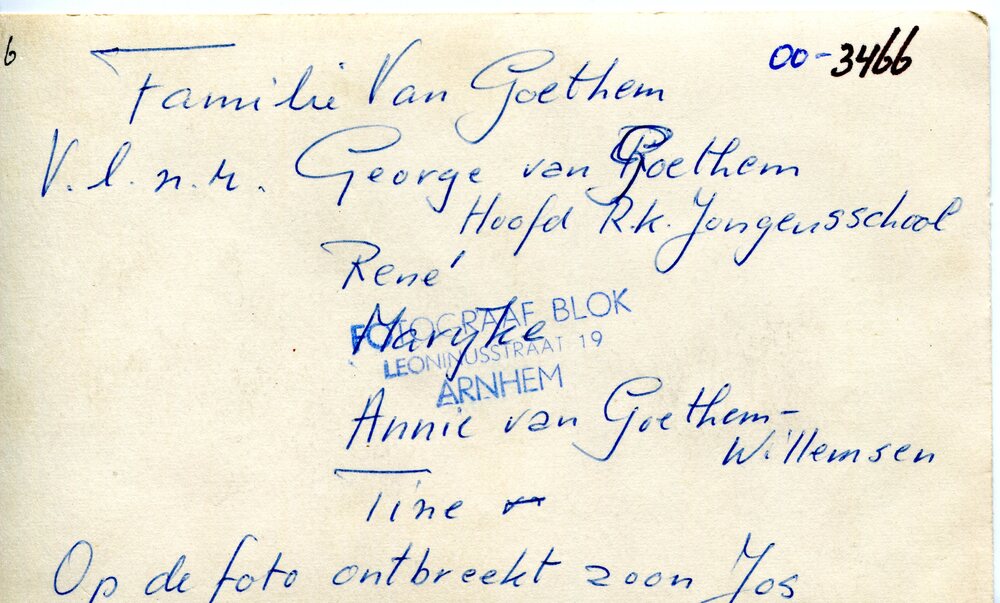 6
00-3466
Familie Van Goethem
V.l.n.r. George van Goethem
Hoofd R.k. Jongensschool
René
Maryke
FOTOGRAAF BLOK
LEONINUSSTRAAT 19
ARNHEM
Annie van Goethem-
Willemsen
Tine
Op de foto ontbreekt zoon Jos